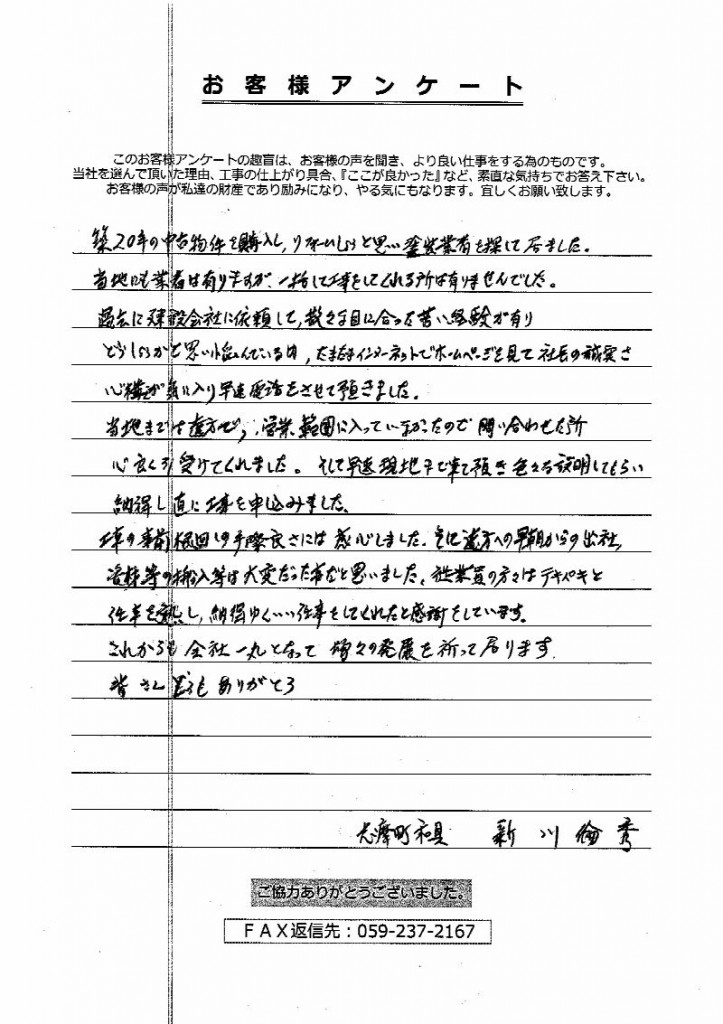 お客様アンケート
このお客様アンケートの趣旨は、お客様の声を聞き、より良い仕事をする為のものです。
当社を選んで頂いた理由、工事の仕上がり具合、『ここが良かった』など、素直な気持ちでお答え下さい。
お客様の声が私達の財産であり励みになり、やる気にもなります。宜しくお願い致します。
築20年の中古物件を購入し、リフォームしようと思い塗装業者を探して居ました。
当地にも業者は有りますが、一括して工事をしてくれる所は有りませんでした。
過去に建設会社に依頼して、散々な目に合った苦い経験が有り
どうしようかと思い悩んでいる時、たまたまインターネットでホームページを見て社長の誠実さ
心構が気に入り早速電話をさせて頂きました。
当地までは遠方で、営業範囲に入っていなかったので問い合わせた所
心良く引受けてくれました。そして早速現地まで来て頂き色々な説明してもらい
納得し直に工事を申込みました。
工事の事前根回しの手際良さには感心しました。特に遠方への早朝からの出社、
器材等の搬入等は大変だった事だと思いました。従業員の方々はテキパキと
仕事を熟し、納得ゆくいい仕事をしてくれたと感謝をしています。
これからも会社一丸となって益々の発展を祈って居ります.
皆さんどうもありがとう
志摩町和具 新川倫秀
ご協力ありがとうございました。
FAX返信先：059-237-2167